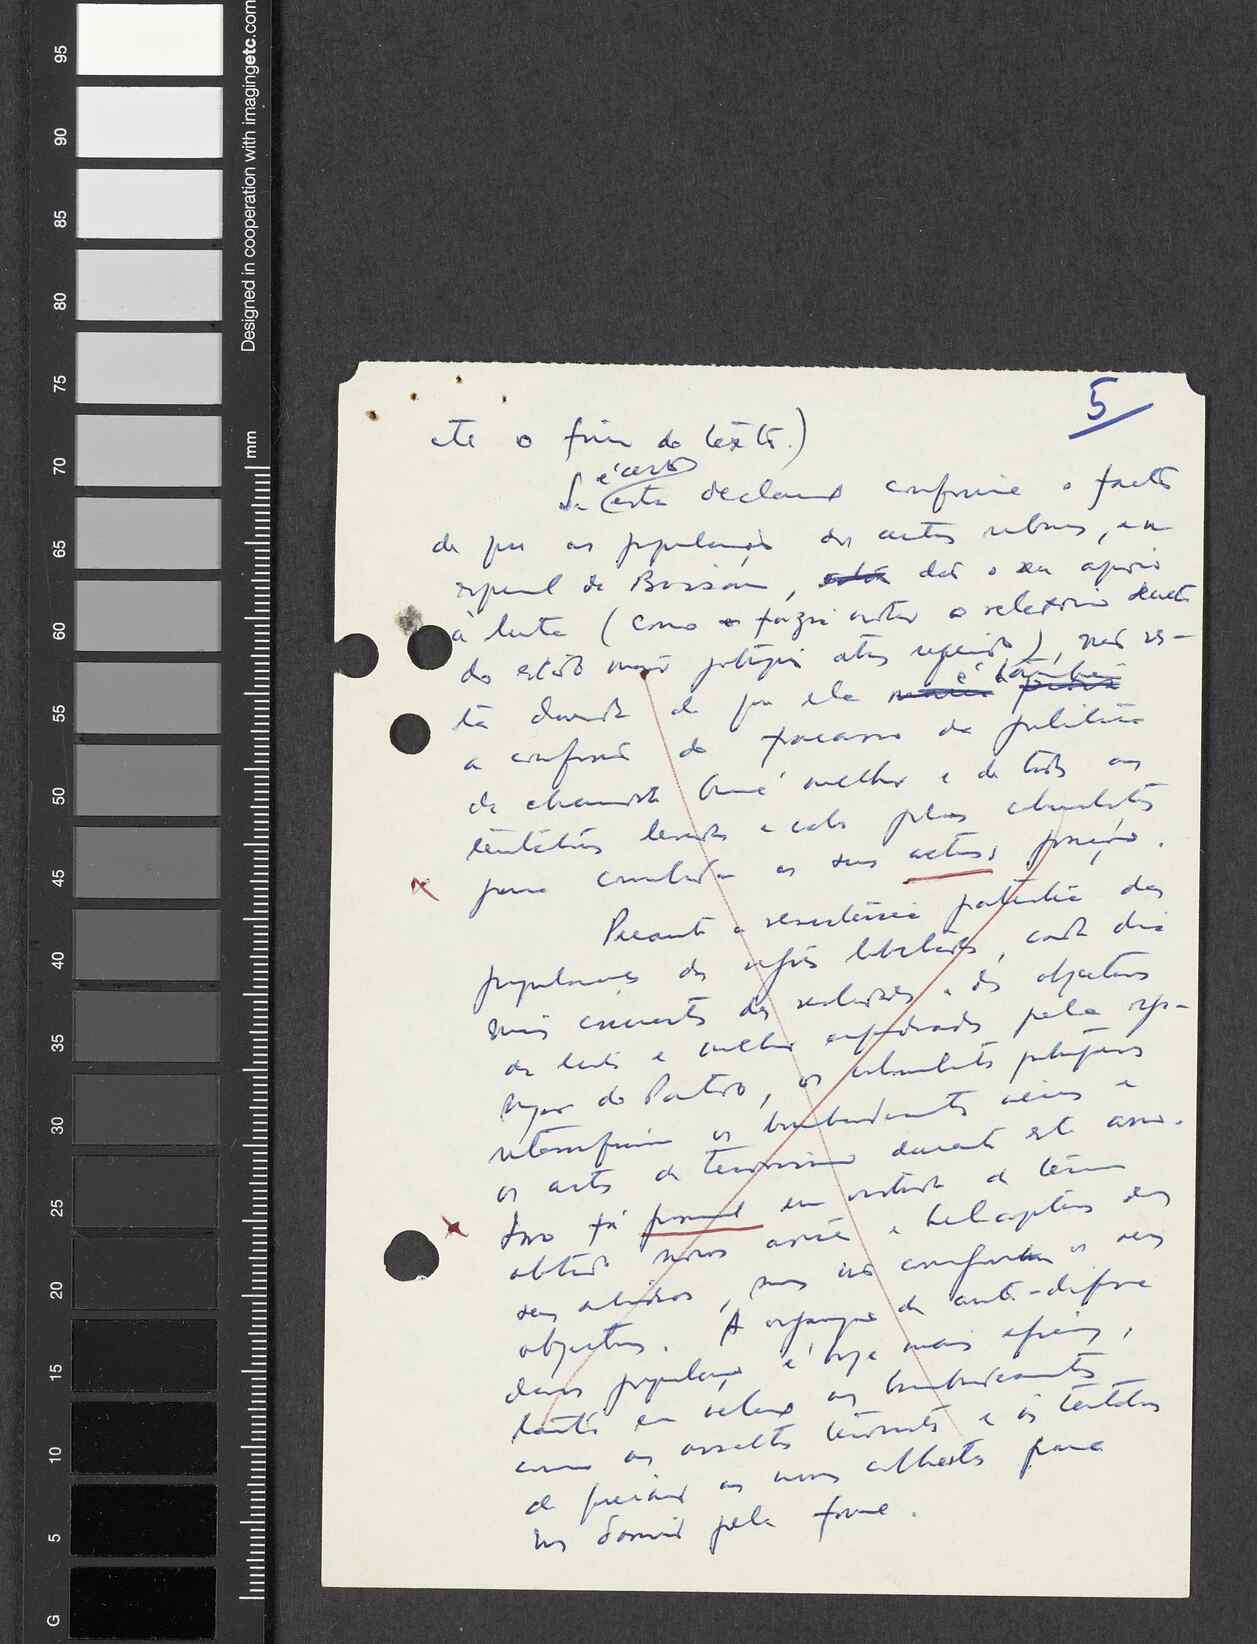 95
90
85
80
75
70
65
60
55
50
45
40
35
30
25
20
15
10
5
G
Designed in cooperation with imagingetc.com
mm
5
até o fim do texto.)
é certo
Se esta declaração confirme o facto
de que as populações dos centros urbanos, em
especial de Bissau, dão o seu apoio
à luta (como o fazia notar o relatório secreto
do estado maior português atrás referido), não res-
é também
ta dúvida de que ela
a confissão do fracasso da política
da chamada Guiné melhor e de todas as
tentativas levadas a cabo pelos colonialistas
para consolidar as suas actuais posições.
x
Perante a resistência patriótica das
populações das regiões libertadas, cada dia
mais conscientes das realidades e dos objectivos
da luta e melhor enquadradas pela
do Partido, os colonialistas portugueses
intensificaram os bombardeamentos aéreos e
os actos de terrorismo durante este ano.
x
Isso foi possível em virtude de terem
obtido novos aviões e helicópteros dos
seus aliados, mas não conseguiram os seus
objectivos. A organização da auto-defesa
das populações é hoje mais eficaz,
tanto em relação aos bombardeamentos
como aos assaltos terroristas e às tentativas
de queimar as nossas colheitas para
nos dominar pela fome.